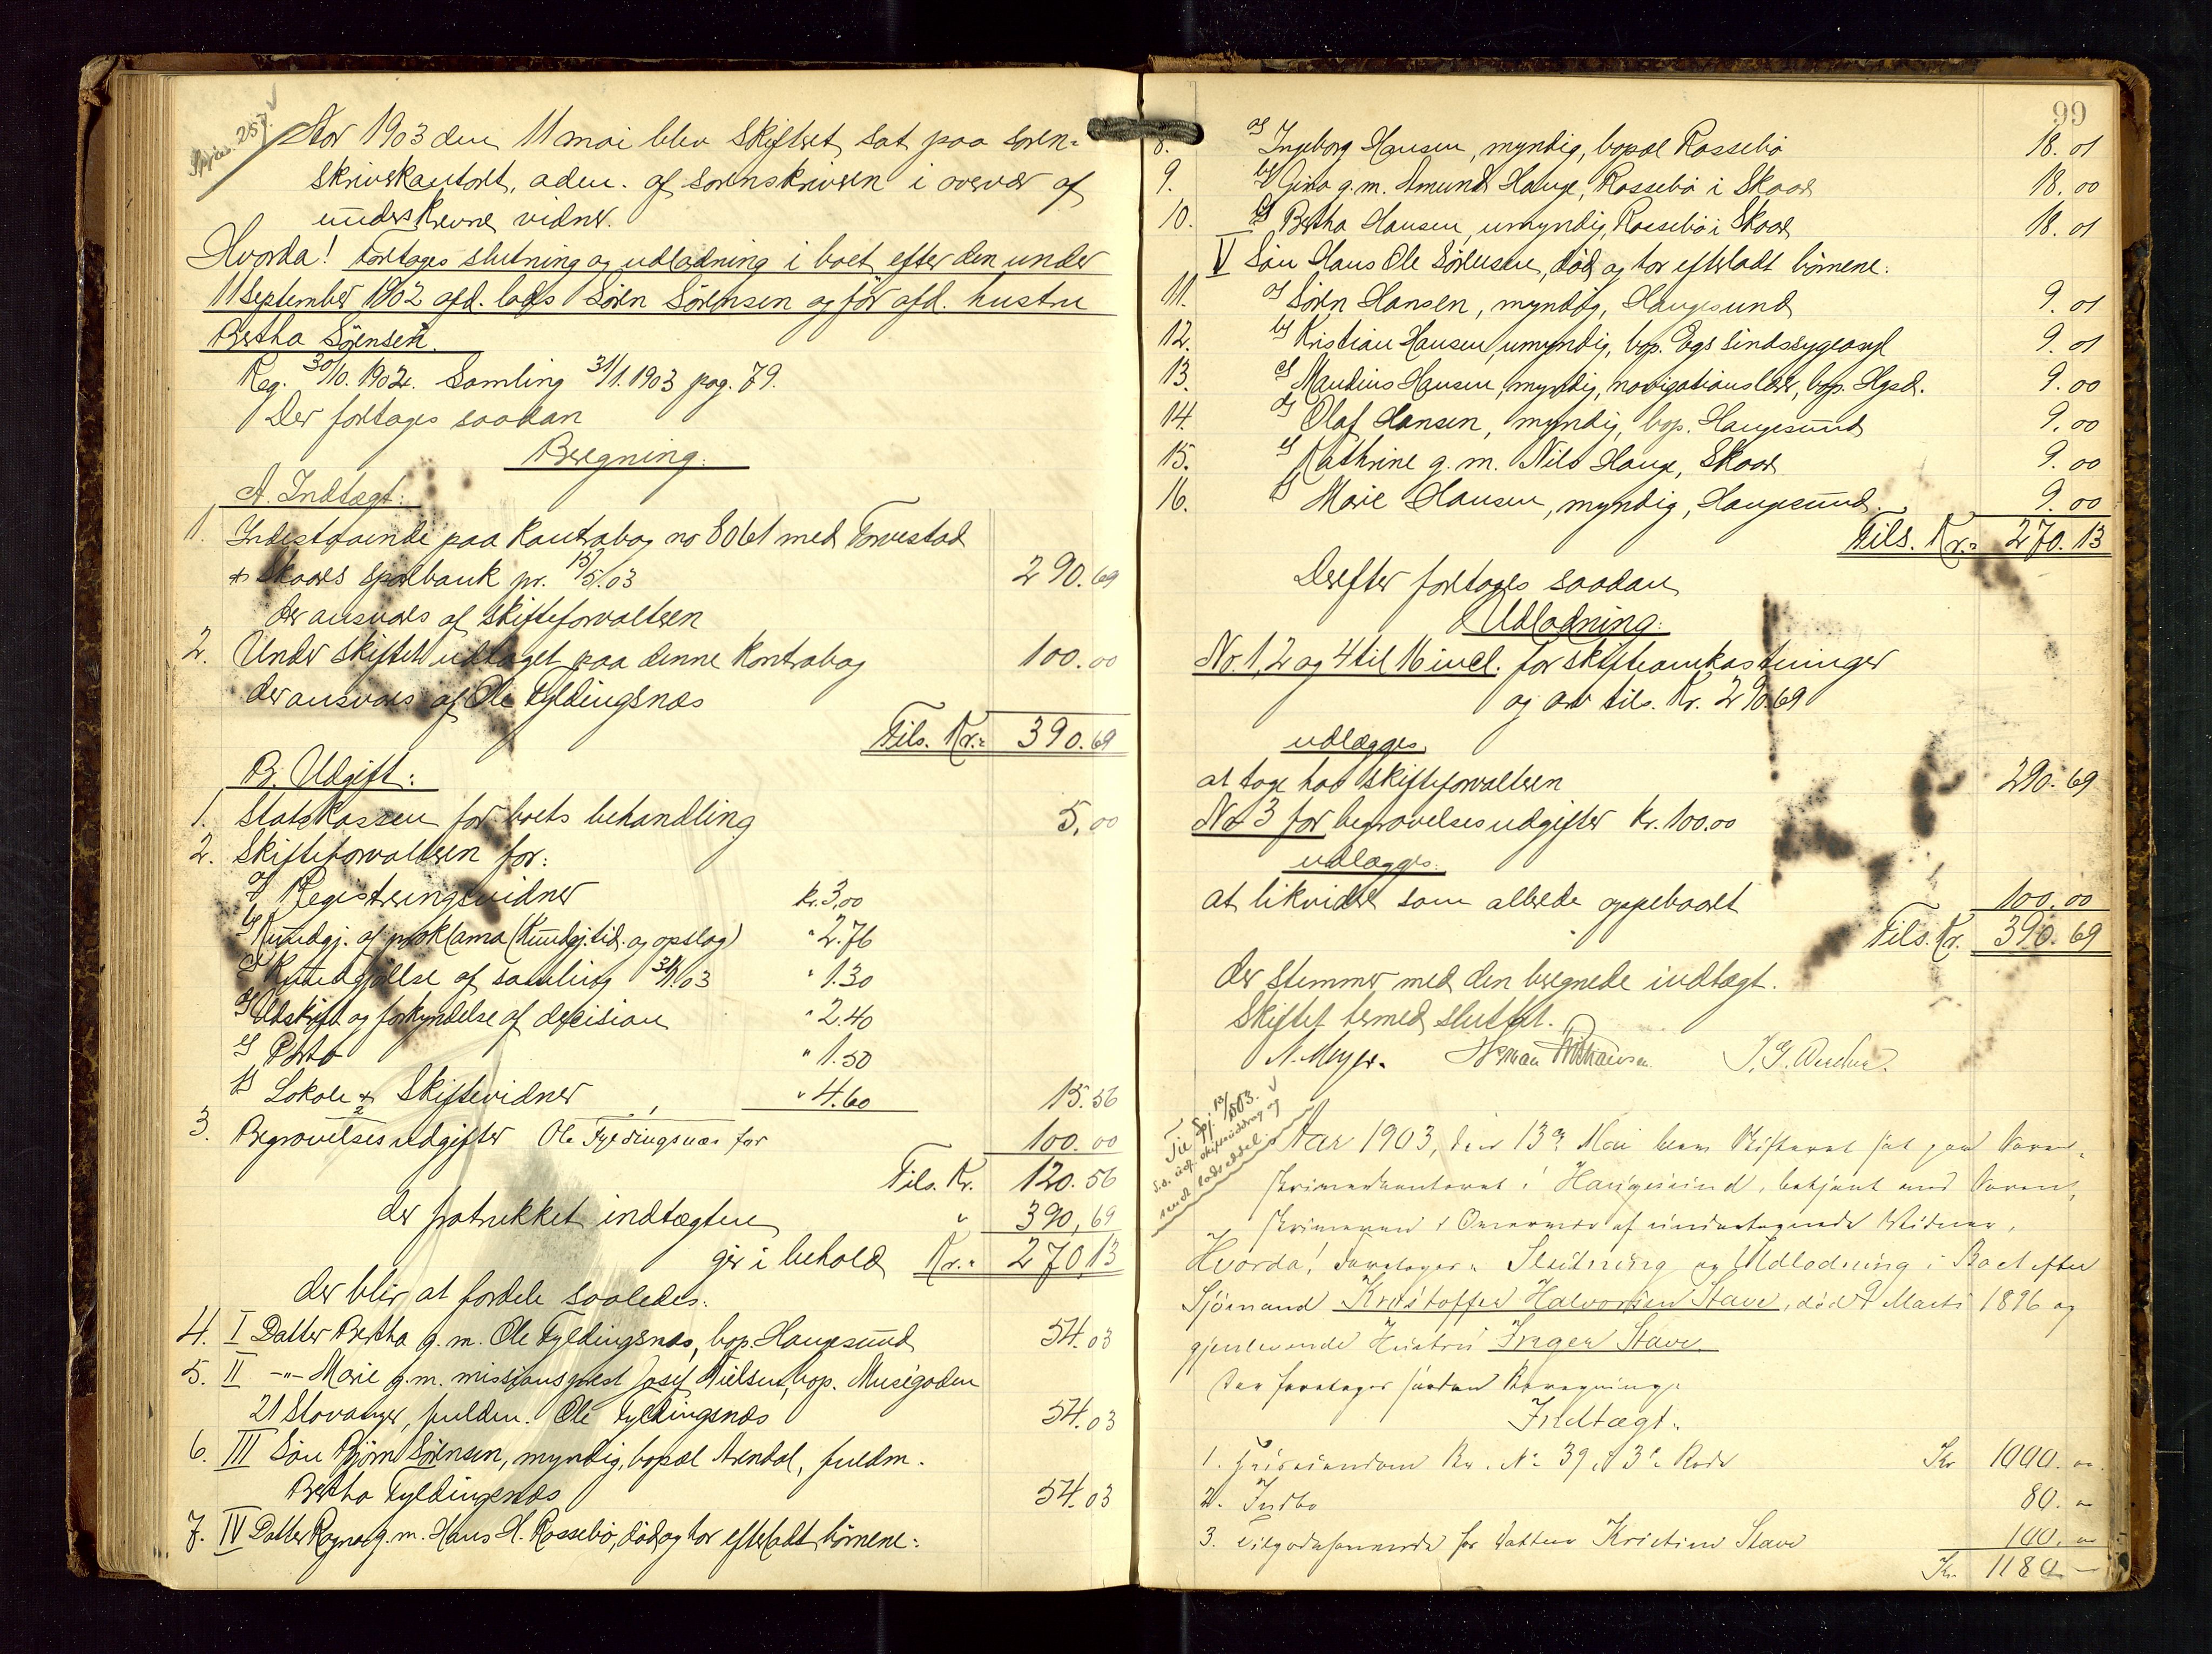 Aar 1903 den 11 mai blev skifteret sat paa soren-
skriverkontoret, adm. af sorenskriveren i overvær af
underskrevne vidner.
Hvorda! foretages slutning og udlodning i boet efter den under
11 September 1902 afd. lods Søren Sørensen og før afd. hustru
Bertha Sørensen.
Reg. 30/10. 1902. Samling 31/1. 1903 pag. 79.
Der foretages saadan
Beregning:
A. Indtægt:
1. Indestaaende paa Kontrabog no 8061 med Torvestad
& Skaares sparebank pr. 15/5.03 290.69
der ansvares af skifteforvalteren
2. Under skiftet udtaget paa denne Kontrabog 100.00
der ansvares af Ole Fyldingsnæs
Tils. Kr.: 390.69
B. Udgift:
1. Statskassen for boets behandling 5.00
2. Skifteforvalteren for:
a) Registreringsvidner kr. 3,00
b) Kundgj. af proklama (Kundgj.tid. og opslag) " 2.76
c) Kundgjørelse af samling 31/1.03 " 1.30
d) Udskrift og forkyndelse af decision " 2.40
e) Porto " 1.50
f) Lokale & Skiftevidner " 4.60 15.56
3. Begravelsesudgifter Ole Fyldingsnæs for 100.00
Tils. Kr. 120.56
der fratrukket indtægten " 390,69
gir i behold Kr.: 270,13
der blir at fordele saaledes:
4. I Datter Bertha g.m. Ole Fyldingsnæs, bop. Haugesund 54.03
5. II -"- Marie g.m. missionsprest Josef Nielsen, bop. Musegaden
21 Stavanger, fuldm. Ole Fyldingsnæs 54.03
6. III Søn Bjørn Sørensen, myndig, bopæl Arendal, fuldm.
Bertha Fyldingsnæs 54.03
7. IV Datter Ragna g.m. Hans H. Rossebø, død og har efterladt børnene:
99
8. a) Ingeborg Hansen, myndig, bopæl Rossebø 18.01
9. b) Gina g.m. Amund Hauge, Rossebø i Skaare 18.00
10. c) Bertha Hansen, umyndig, Rossebø i Skaare 18.01
V Søn Hans Ole Sørensen, død og har efterladt børnene:
11. a) Søren Hansen, myndig, Haugesund 9.01
12. b) Kristian Hansen, umyndig, bop. Egs sindssygeasyl 9.01
13. c) Maudius Hansen, myndig, navigationslærer, bop. Hgsd. 9.00
14. d) Olaf Hansen, myndig, bop. Haugesund 9.00
15. e) Kathrine g.m. Nils Hauge, Skaare 9.00
16. f) Marie Hansen, myndig, Haugesund. 9.00
Tils. Kr.: 270.13
Derefter foretages saadan
Udlodning:
No. 1, 2 og 4 til 16 incl. for skifteomkostninger
og arv tils. Kr. 290.69
udlægges
at tage hos skifteforvalteren 290.69
No 3 for begravelsesudgifter kr. 100.00
udlægges:
at likvidere som allerede oppebaaret 100.00
Tils. Kr. 390.69
der stemmer med den beregnede indtægt.
Skiftet dermed sluttet.
N. Meyer.
Aar 1903, den 13de Mai blev Skifteret sat paa Soren-
skriverkontoret i Haugesund, betjent med Soren-
skriveren i Overvær af undertegnede Vidner,
Hvorda! foretoges Slutning og Udlodning i Boet efter
Sjømand Kristoffer Halvorsen Stave, død 9 Marts 1896 og
gjenlevende Hustru Inger Stave.
Der foretages saadan Beregning:
Indtægt:
1. Huseiendom Br. No 39 i 3die Rode Kr 1000.00
2. Indbo 80.00
3. Tilgodehavende hos Datter Kristine Stave 100.00
Kr. 1180 -